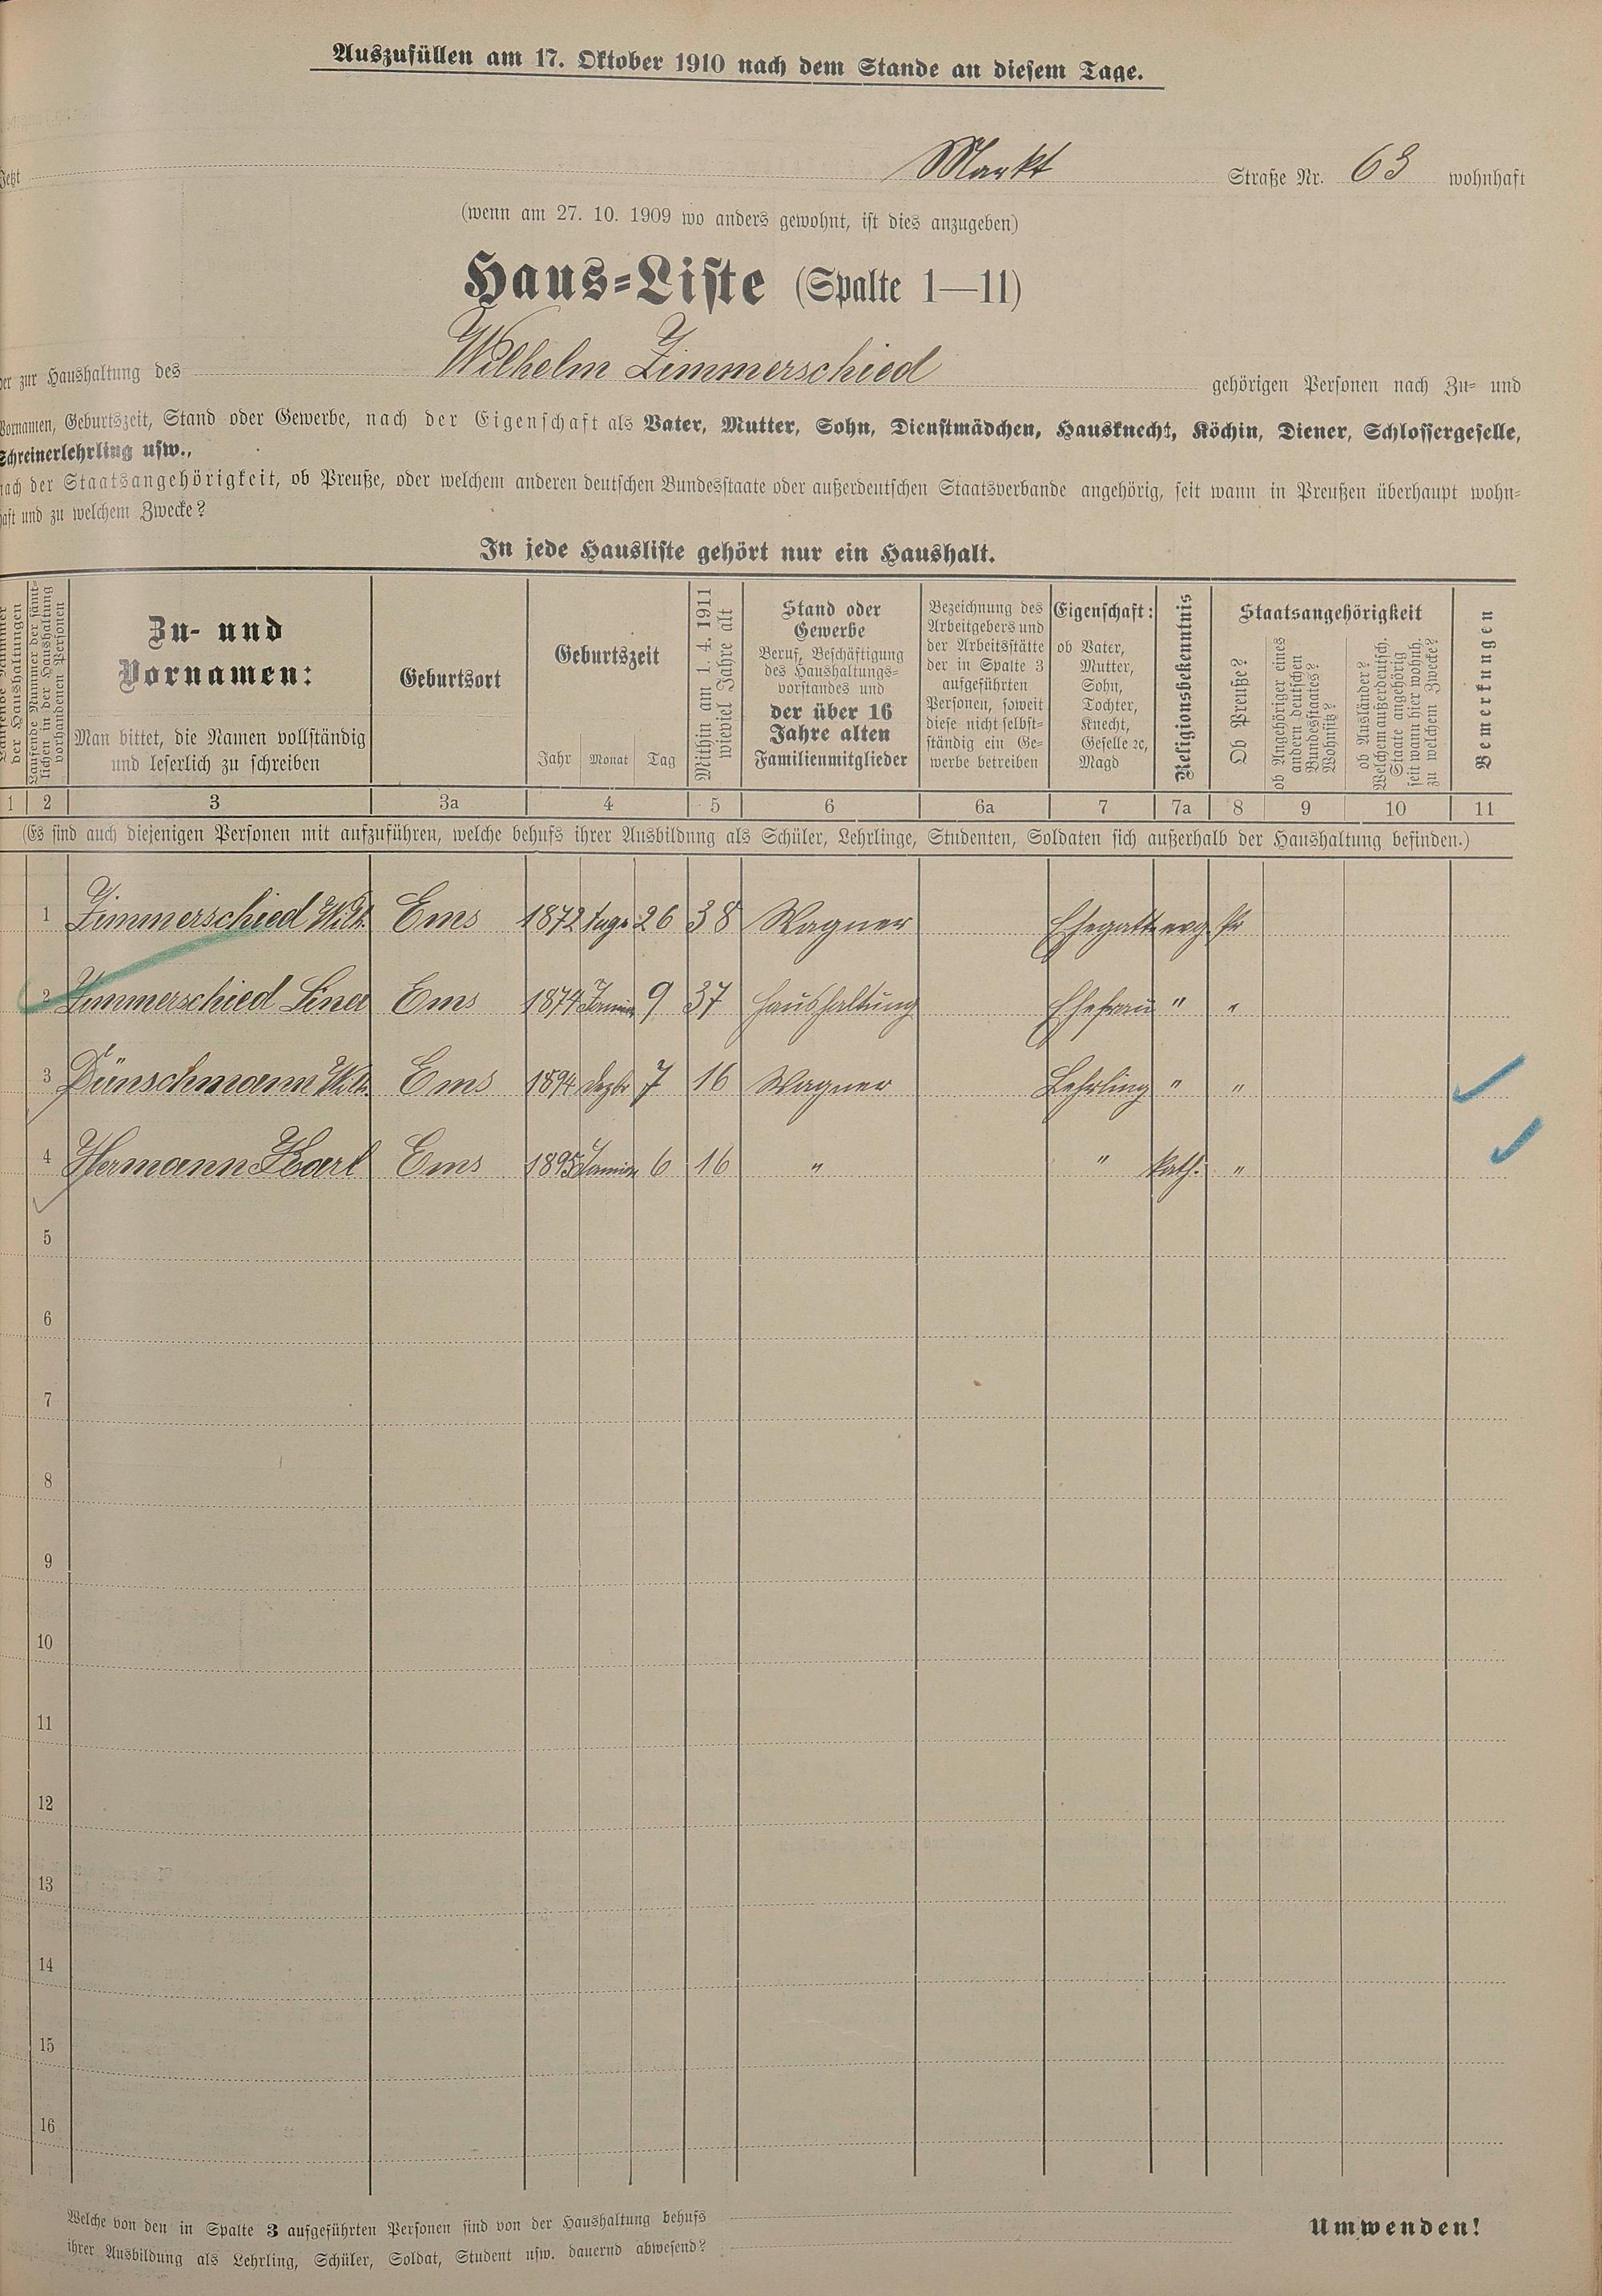 Auszufüllen am 17. Oktober 1910 nach dem Stande an diesem Tage.
Jetzt Markt Straße Nr. 63 wohnhaft
(wenn am 27. 10. 1909 wo anders gewohnt, ist dies anzugeben)
Haus-Liste (Spalte 1—11)
der zur Haushaltung des Wilhelm Zimmerschied gehörigen Personen nach Zu- und
Vornamen, Geburtszeit, Stand oder Gewerbe, nach der Eigenschaft als Vater, Mutter, Sohn, Dienstmädchen, Hausknecht, Köchin, Diener, Schlossergeselle,
Schreinerlehrling usw.,
nach der Staatsangehörigkeit, ob Preuße, oder welchem anderen deutschen Bundesstaate oder außerdeutschen Staatsverbande angehörig, seit wann in Preußen überhaupt wohn-
haft und zu welchem Zwecke?
In jede Hausliste gehört nur ein Haushalt.
Laufende Nummer der Haushaltungen
Laufende Nummer der sämtlichen in der Haushaltung vorhandenen Personen
Zu- und
Vornamen:
Man bittet, die Namen vollständig
und leserlich zu schreiben
Geburtsort
Geburtszeit
Jahr Monat Tag
Mithin am 1. 4. 1911
wieviel Jahre alt
Stand oder
Gewerbe
Beruf, Beschäftigung
des Haushaltungs-
vorstandes und
der über 16
Jahre alten
Familienmitglieder
Bezeichnung des
Arbeitgebers und
der Arbeitsstätte
der in Spalte 3
aufgeführten
Personen, soweit
diese nicht selbst-
ständig ein Ge-
werbe betreiben
Eigenschaft:
ob Vater,
Mutter,
Sohn,
Tochter,
Knecht,
Geselle ec,
Magd
Religionsbekenntnis
Staatsangehörigkeit
Ob Preuße?
ob Angehöriger eines
andern deutschen
Bundesstaates?
Wohnsitz?
ob Ausländer?
Welchem außerdeutsch.
Staate angehörig
seit wann hier wohnh.
zu welchem Zwecke?
Bemerkungen
1 2 3 3a 4 5 6 6a 7 7a 8 9 10 11
(Es sind auch diejenigen Personen mit aufzuführen, welche behufs ihrer Ausbildung als Schüler, Lehrlinge, Studenten, Soldaten sich außerhalb der Haushaltung befinden.)
1 Zimmerschied Wilh. Ems 1872 26 38 Wagner Ehegatte evg. Pr
2 Zimmerschied Lina Ems 1874 Januar 9 37 Haushaltung Ehefrau " "
3 Dünschmann Wilh. Ems 1894 Dezbr 7 16 Wagner Lehrling " "
4 Hermann Karl Ems 1895 Januar 6 16 " " kath. "
5
6
7
8
9
10
11
12
13
14
15
16
Welche von den in Spalte 3 aufgeführten Personen sind von der Haushaltung behufs
ihrer Ausbildung als Lehrling, Schüler, Soldat, Student usw. dauernd abwesend?
Umwenden!